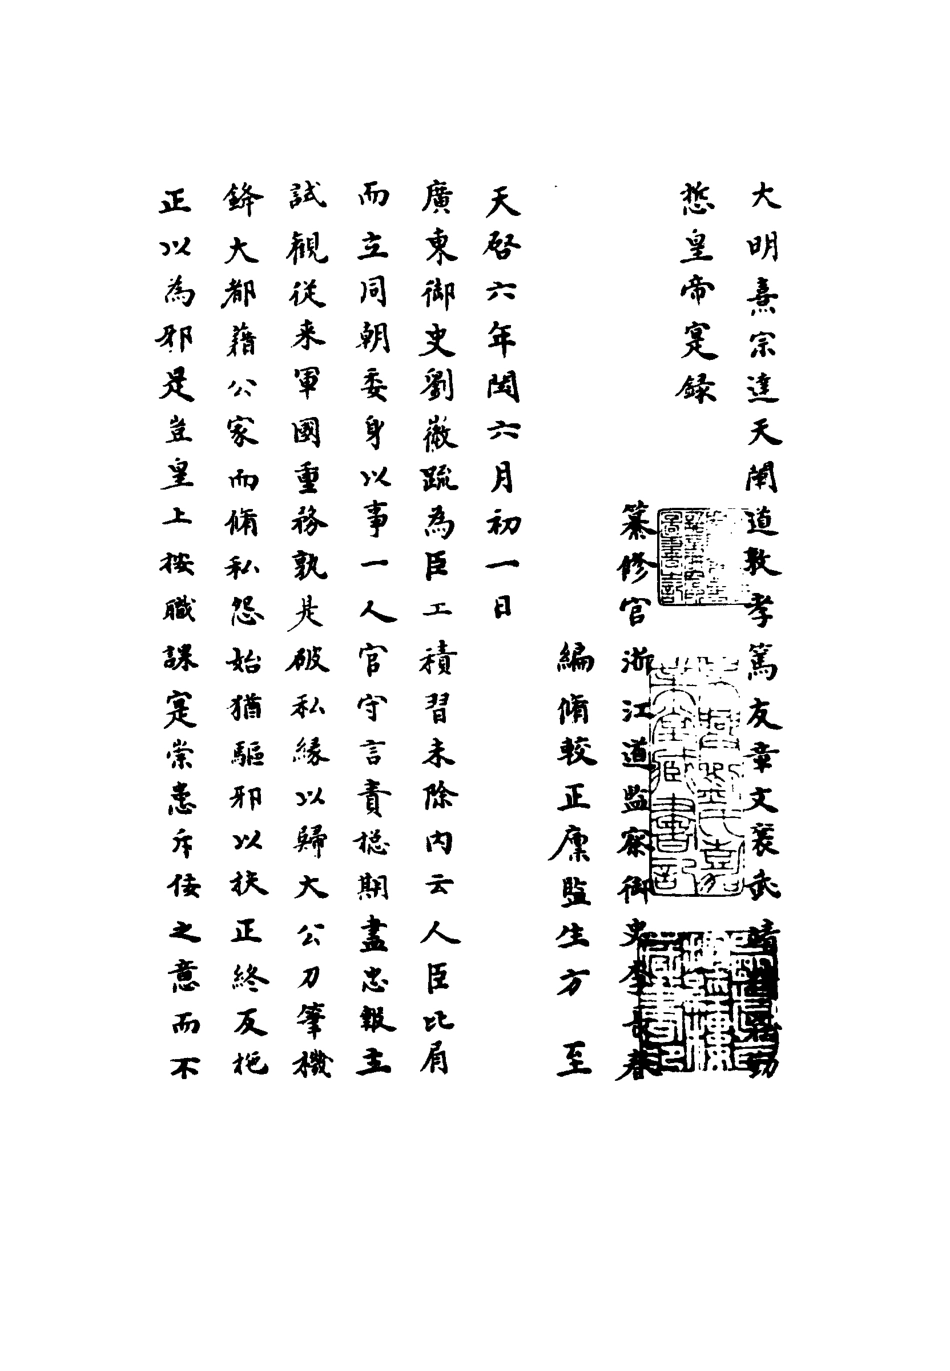 大明熹宗達天闡道敦孝篤友章文襄武靖穆莊勤
悊皇帝寔録
纂修官浙江道監察御史李長春
編脩較正廩監生方至
天啓六年閏六月初一日
廣東御史劉徽䟽為臣工積習未除内云人臣比肩
而立同朝委身以事一人官守言責總期盡忠報主
試觀從来軍國重務孰是破私縁以歸大公刀筆機
鋒大都藉公家而脩私怨始猶驅邪以扶正終反拖
正以為邪是豈皇上按職課寔崇惪斥佞之意而不